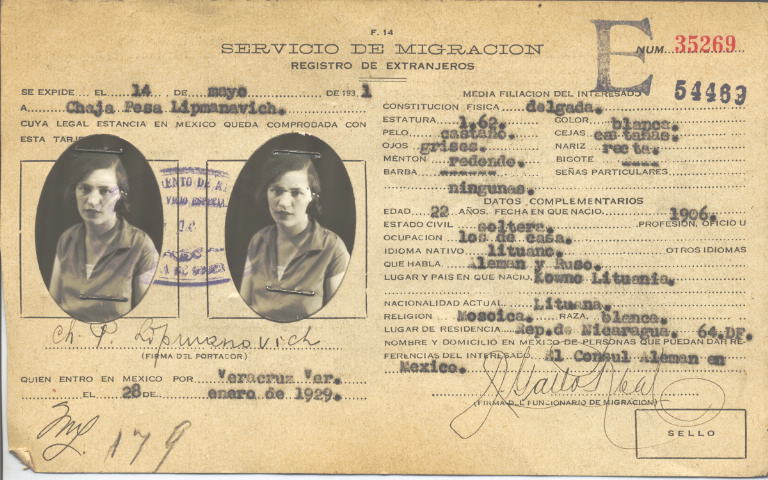 F. 14
SERVICIO DE MIGRACION
REGISTRO DE EXTRANJEROS
E
NUM. 35269
54463
SE EXPIDE EL 14 DE mayo DE 1931
A Chaja Pesa Lipmanavich.
CUYA LEGAL ESTANCIA EN MEXICO QUEDA COMPROBADA CON
ESTA TARJE
Ch. P. Lopmanovich
(FIRMA DEL PORTADOR)
QUIEN ENTRO EN MEXICO POR Veracruz Ver.
EL 28 DE enero de 1929.
179
MEDIA FILIACION DEL INTERESADO
CONSTITUCION FISICA delgada.
ESTATURA 1.62. COLOR blanca.
PELO castaño. CEJAS castañas.
OJOS grises. NARIZ recta.
MENTON redondo. BIGOTE ----
BARBA ------ SEÑAS PARTICULARES
ningunas.
DATOS COMPLEMENTARIOS
EDAD 22 AÑOS. FECHA EN QUE NACIO 1906.
ESTADO CIVIL soltera. PROFESION, OFICIO U
OCUPACION los de casa.
IDIOMA NATIVO lituano. OTROS IDIOMAS
QUE HABLA Aleman y Ruso.
LUGAR Y PAIS EN QUE NACIO Kowno Lituania.
NACIONALIDAD ACTUAL Lituana.
RELIGION Mosoica. RAZA blanca.
LUGAR DE RESIDENCIA Rep. de Nicaragua. 64.DF.
NOMBRE Y DOMICILIO EN MEXICO DE PERSONAS QUE PUEDAN DAR RE
FERENCIAS DEL INTERESADO El Consul Aleman en
Mexico.
(FIRMA DEL FUNCIONARIO DE MIGRACION)
SELLO